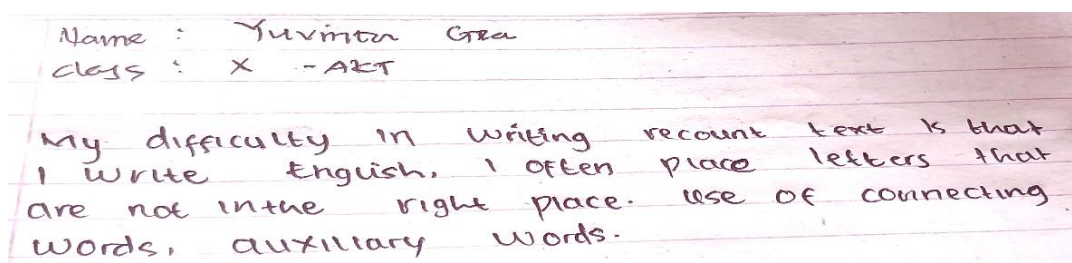 Name : Yuvinta Gea
class : X - AKT
My difficulty in writing recount text is that
I write English, I often place letters that
are not in the right place. Use of connecting
words, auxiliary words.